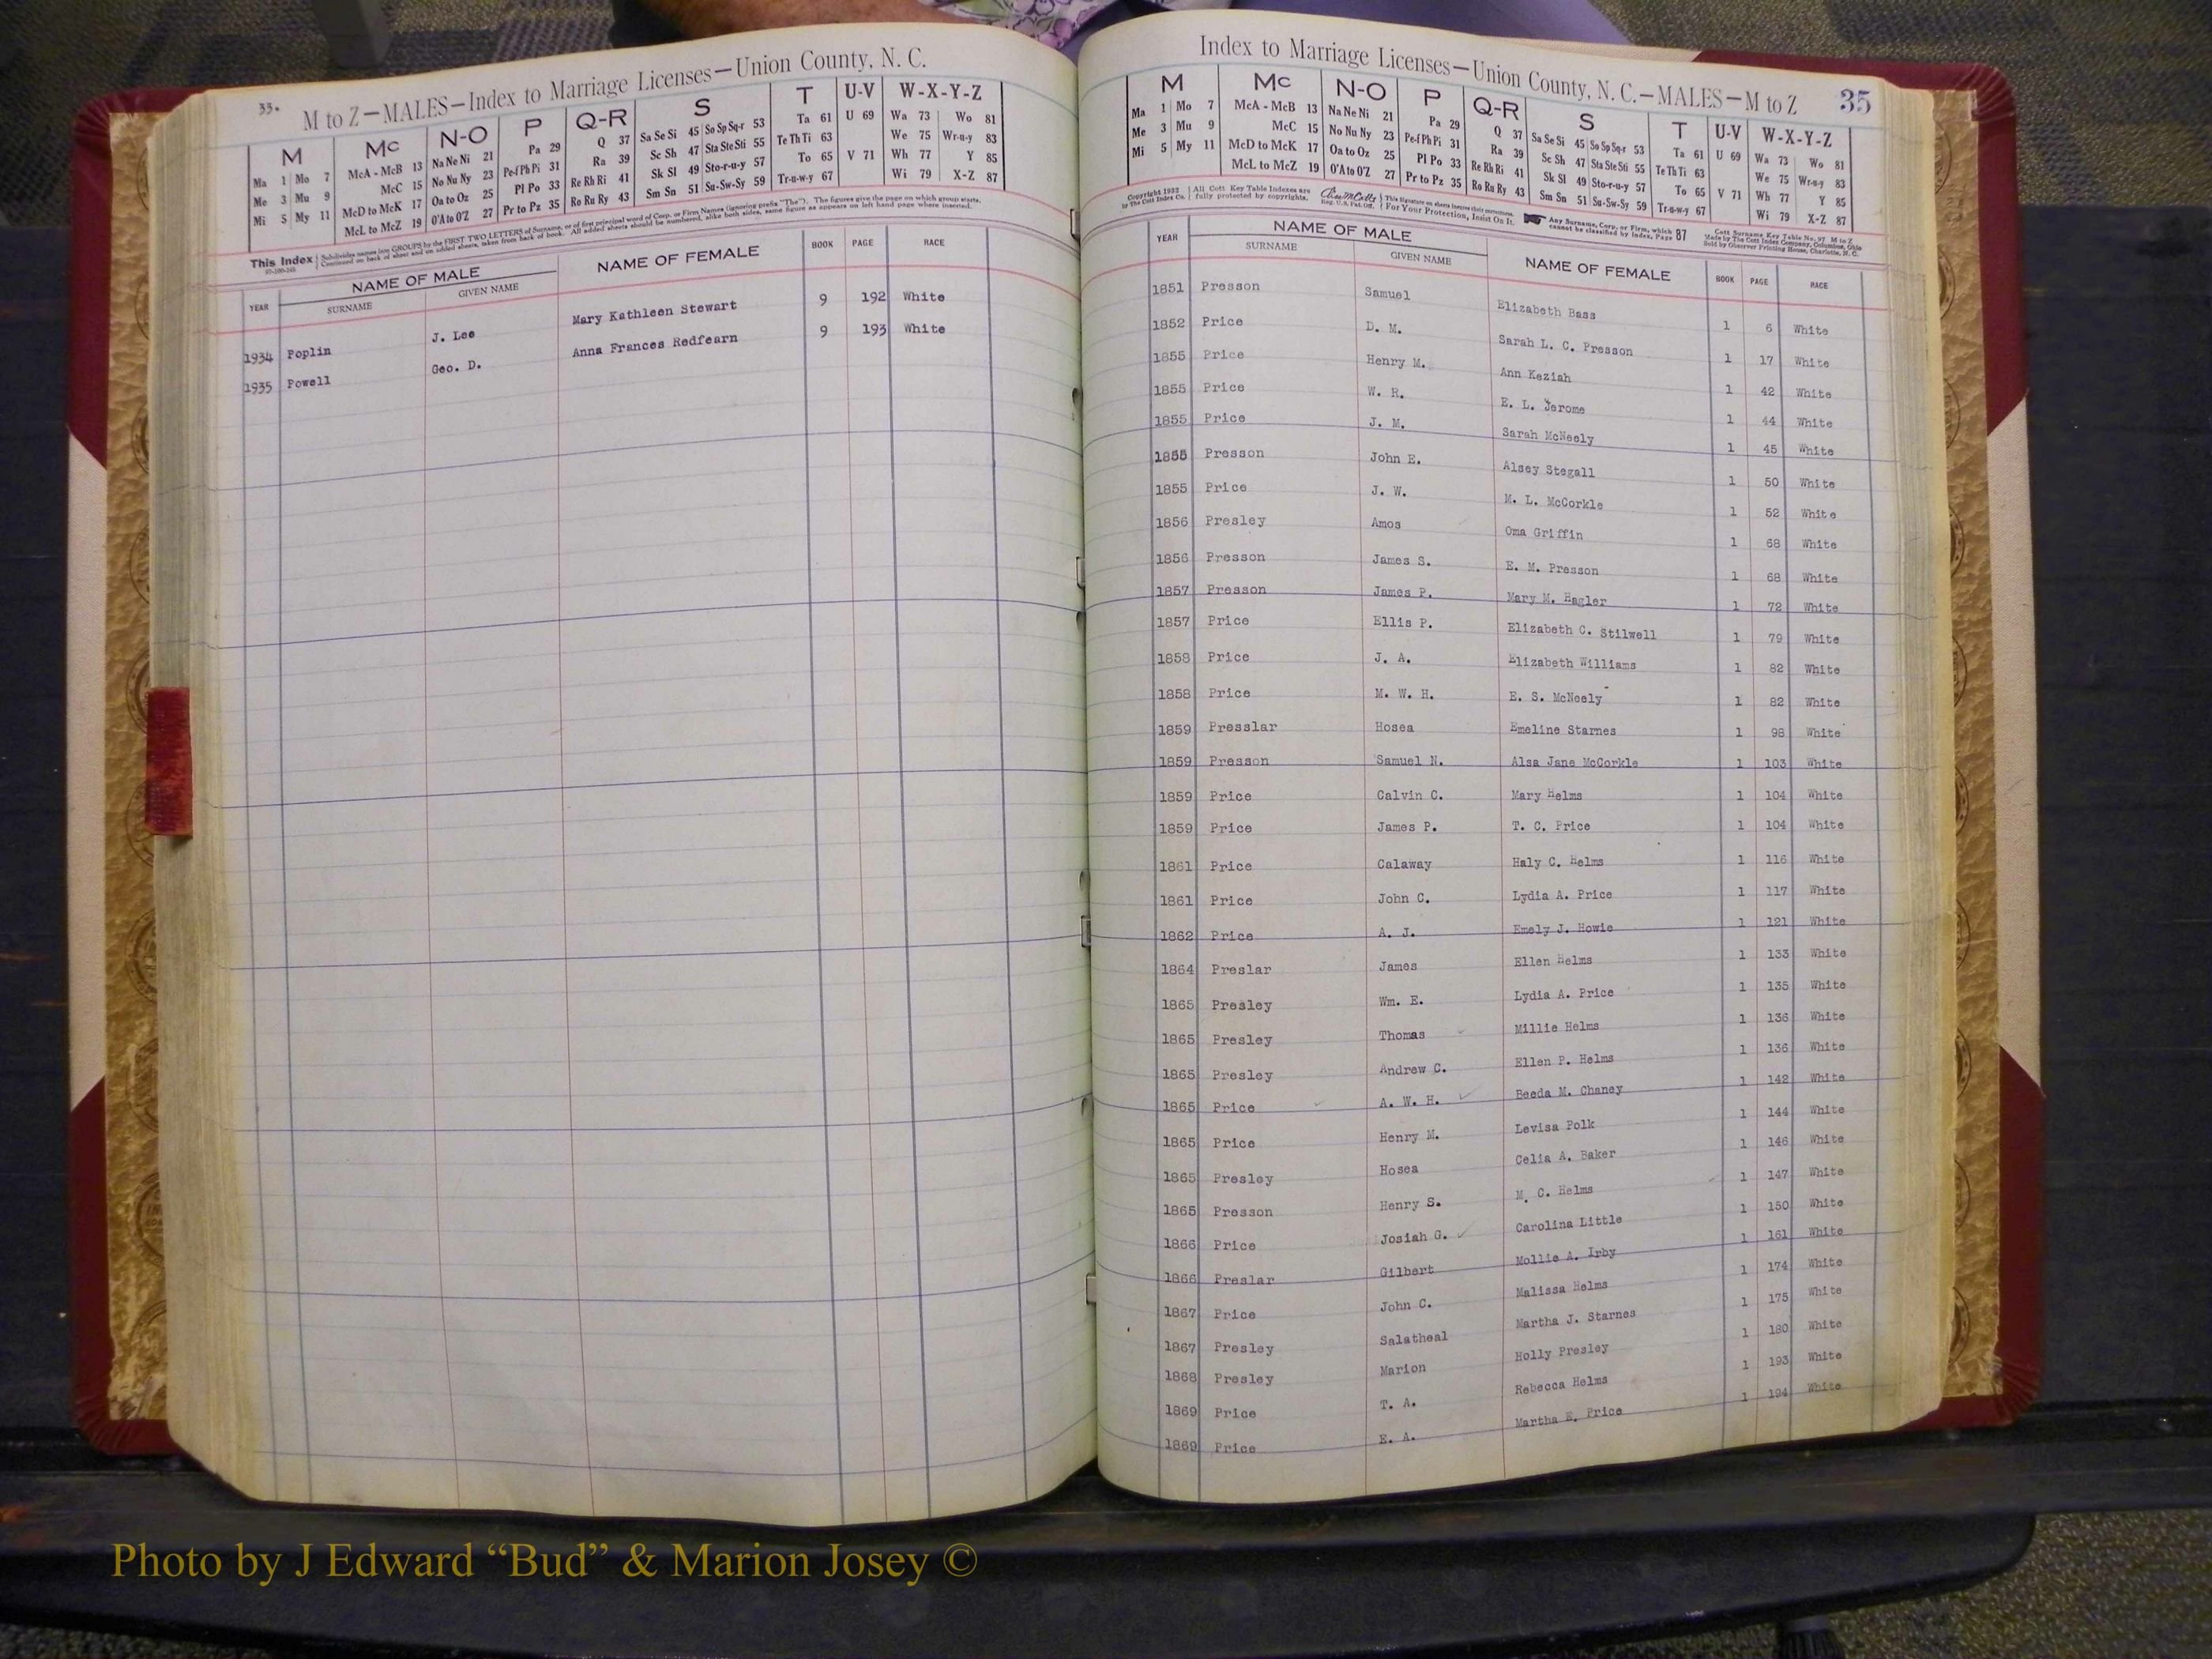 33.
M to Z—MALES—Index to Marriage Licenses—Union County, N. C.
M Mc N-O P Q-R S T U-V W-X-Y-Z
Ma 1 Mo 7 McA - McB 13 Na Ne Ni 21 Pa 29 Q 37 Sa Se Si 45 So Sp Sq-r 53 Ta 61 U 69 Wa 73 Wo 81
Me 3 Mu 9 McC 15 No Nu Ny 23 Pe-f Ph Pi 31 Ra 39 Sc Sh 47 Sta Ste Sti 55 Te Th Ti 63 We 75 Wr-u-y 83
Mi 5 My 11 McD to McK 17 Oa to Oz 25 Pl Po 33 Re Rh Ri 41 Sk Sl 49 Sto-r-u-y 57 To 65 V 71 Wh 77 Y 85
McL to McZ 19 O'A to O'Z 27 Pr to Pz 35 Ro Ru Ry 43 Sm Sn 51 Su-Sw-Sy 59 Tr-u-w-y 67 Wi 79 X-Z 87
This Index Subdivides names into GROUPS by the FIRST TWO LETTERS of Surname, or of first principal word of Corp. or Firm Names (ignoring prefix "The"). The figures give the page on which group starts.
Continued on back of sheet and on added sheets, taken from back of book. All added sheets should be numbered, alike both sides, same figure as appears on left hand page where inserted.
YEAR NAME OF MALE NAME OF FEMALE BOOK PAGE RACE
SURNAME GIVEN NAME
1934 Poplin J. Lee Mary Kathleen Stewart 9 192 White
1935 Powell Geo. D. Anna Frances Redfearn 9 193 White
Index to Marriage Licenses—Union County, N. C.—MALES—M to Z 35
M Mc N-O P Q-R S T U-V W-X-Y-Z
Ma 1 Mo 7 McA - McB 13 Na Ne Ni 21 Pa 29 Q 37 Sa Se Si 45 So Sp Sq-r 53 Ta 61 U 69 Wa 73 Wo 81
Me 3 Mu 9 McC 15 No Nu Ny 23 Pe-f Ph Pi 31 Ra 39 Sc Sh 47 Sta Ste Sti 55 Te Th Ti 63 We 75 Wr-u-y 83
Mi 5 My 11 McD to McK 17 Oa to Oz 25 Pl Po 33 Re Rh Ri 41 Sk Sl 49 Sto-r-u-y 57 To 65 V 71 Wh 77 Y 85
McL to McZ 19 O'A to O'Z 27 Pr to Pz 35 Ro Ru Ry 43 Sm Sn 51 Su-Sw-Sy 59 Tr-u-w-y 67 Wi 79 X-Z 87
Copyright 1932 All Cott Key Table Indexes are This signature on sheets insures their correctness. Any Surname, Corp. or Firm, which Cott Surname Key Table No. 97 M to Z
by The Cott Index Co. fully protected by copyrights. Reg. U.S. Pat. Off. For Your Protection, Insist On It. cannot be classified by Index, Page 87 Made by The Cott Index Company, Columbus, Ohio
Sold by Observer Printing House, Charlotte, N. C.
YEAR NAME OF MALE NAME OF FEMALE BOOK PAGE RACE
SURNAME GIVEN NAME
1851 Presson Samuel Elizabeth Bass 1 6 White
1852 Price D. M. Sarah L. C. Presson 1 17 White
1855 Price Henry M. Ann Keziah 1 42 White
1855 Price W. R. E. L. Jerome 1 44 White
1855 Price J. M. Sarah McNeely 1 45 White
1855 Presson John E. Alsey Stegall 1 50 White
1855 Price J. W. M. L. McCorkle 1 52 White
1856 Presley Amos Oma Griffin 1 68 White
1856 Presson James S. E. M. Presson 1 68 White
1857 Presson James P. Mary M. Hagler 1 72 White
1857 Price Ellis P. Elizabeth C. Stilwell 1 79 White
1858 Price J. A. Elizabeth Williams 1 82 White
1858 Price M. W. H. E. S. McNeely 1 82 White
1859 Presslar Hosea Emeline Starnes 1 98 White
1859 Presson Samuel N. Alsa Jane McCorkle 1 103 White
1859 Price Calvin C. Mary Helms 1 104 White
1859 Price James P. T. C. Price 1 104 White
1861 Price Calaway Haly C. Helms 1 116 White
1861 Price John C. Lydia A. Price 1 117 White
1862 Price A. J. Emely J. Howie 1 121 White
1864 Preslar James Ellen Helms 1 133 White
1865 Presley Wm. E. Lydia A. Price 1 135 White
1865 Presley Thomas Millie Helms 1 136 White
1865 Presley Andrew C. Ellen P. Helms 1 136 White
1865 Price A. W. H. Beeda M. Chaney 1 142 White
1865 Price Henry M. Levisa Polk 1 144 White
1865 Presley Hosea Celia A. Baker 1 146 White
1865 Presson Henry S. M. C. Helms 1 147 White
1866 Price Josiah G. Carolina Little 1 150 White
1866 Preslar Gilbert Mollie A. Irby 1 161 White
1867 Price John C. Malissa Helms 1 174 White
1867 Presley Salatheal Martha J. Starnes 1 175 White
1868 Presley Marion Holly Presley 1 180 White
1869 Price T. A. Rebecca Helms 1 193 White
1869 Price E. A. Martha E. Price 1 194 White
Photo by J Edward “Bud” & Marion Josey ©